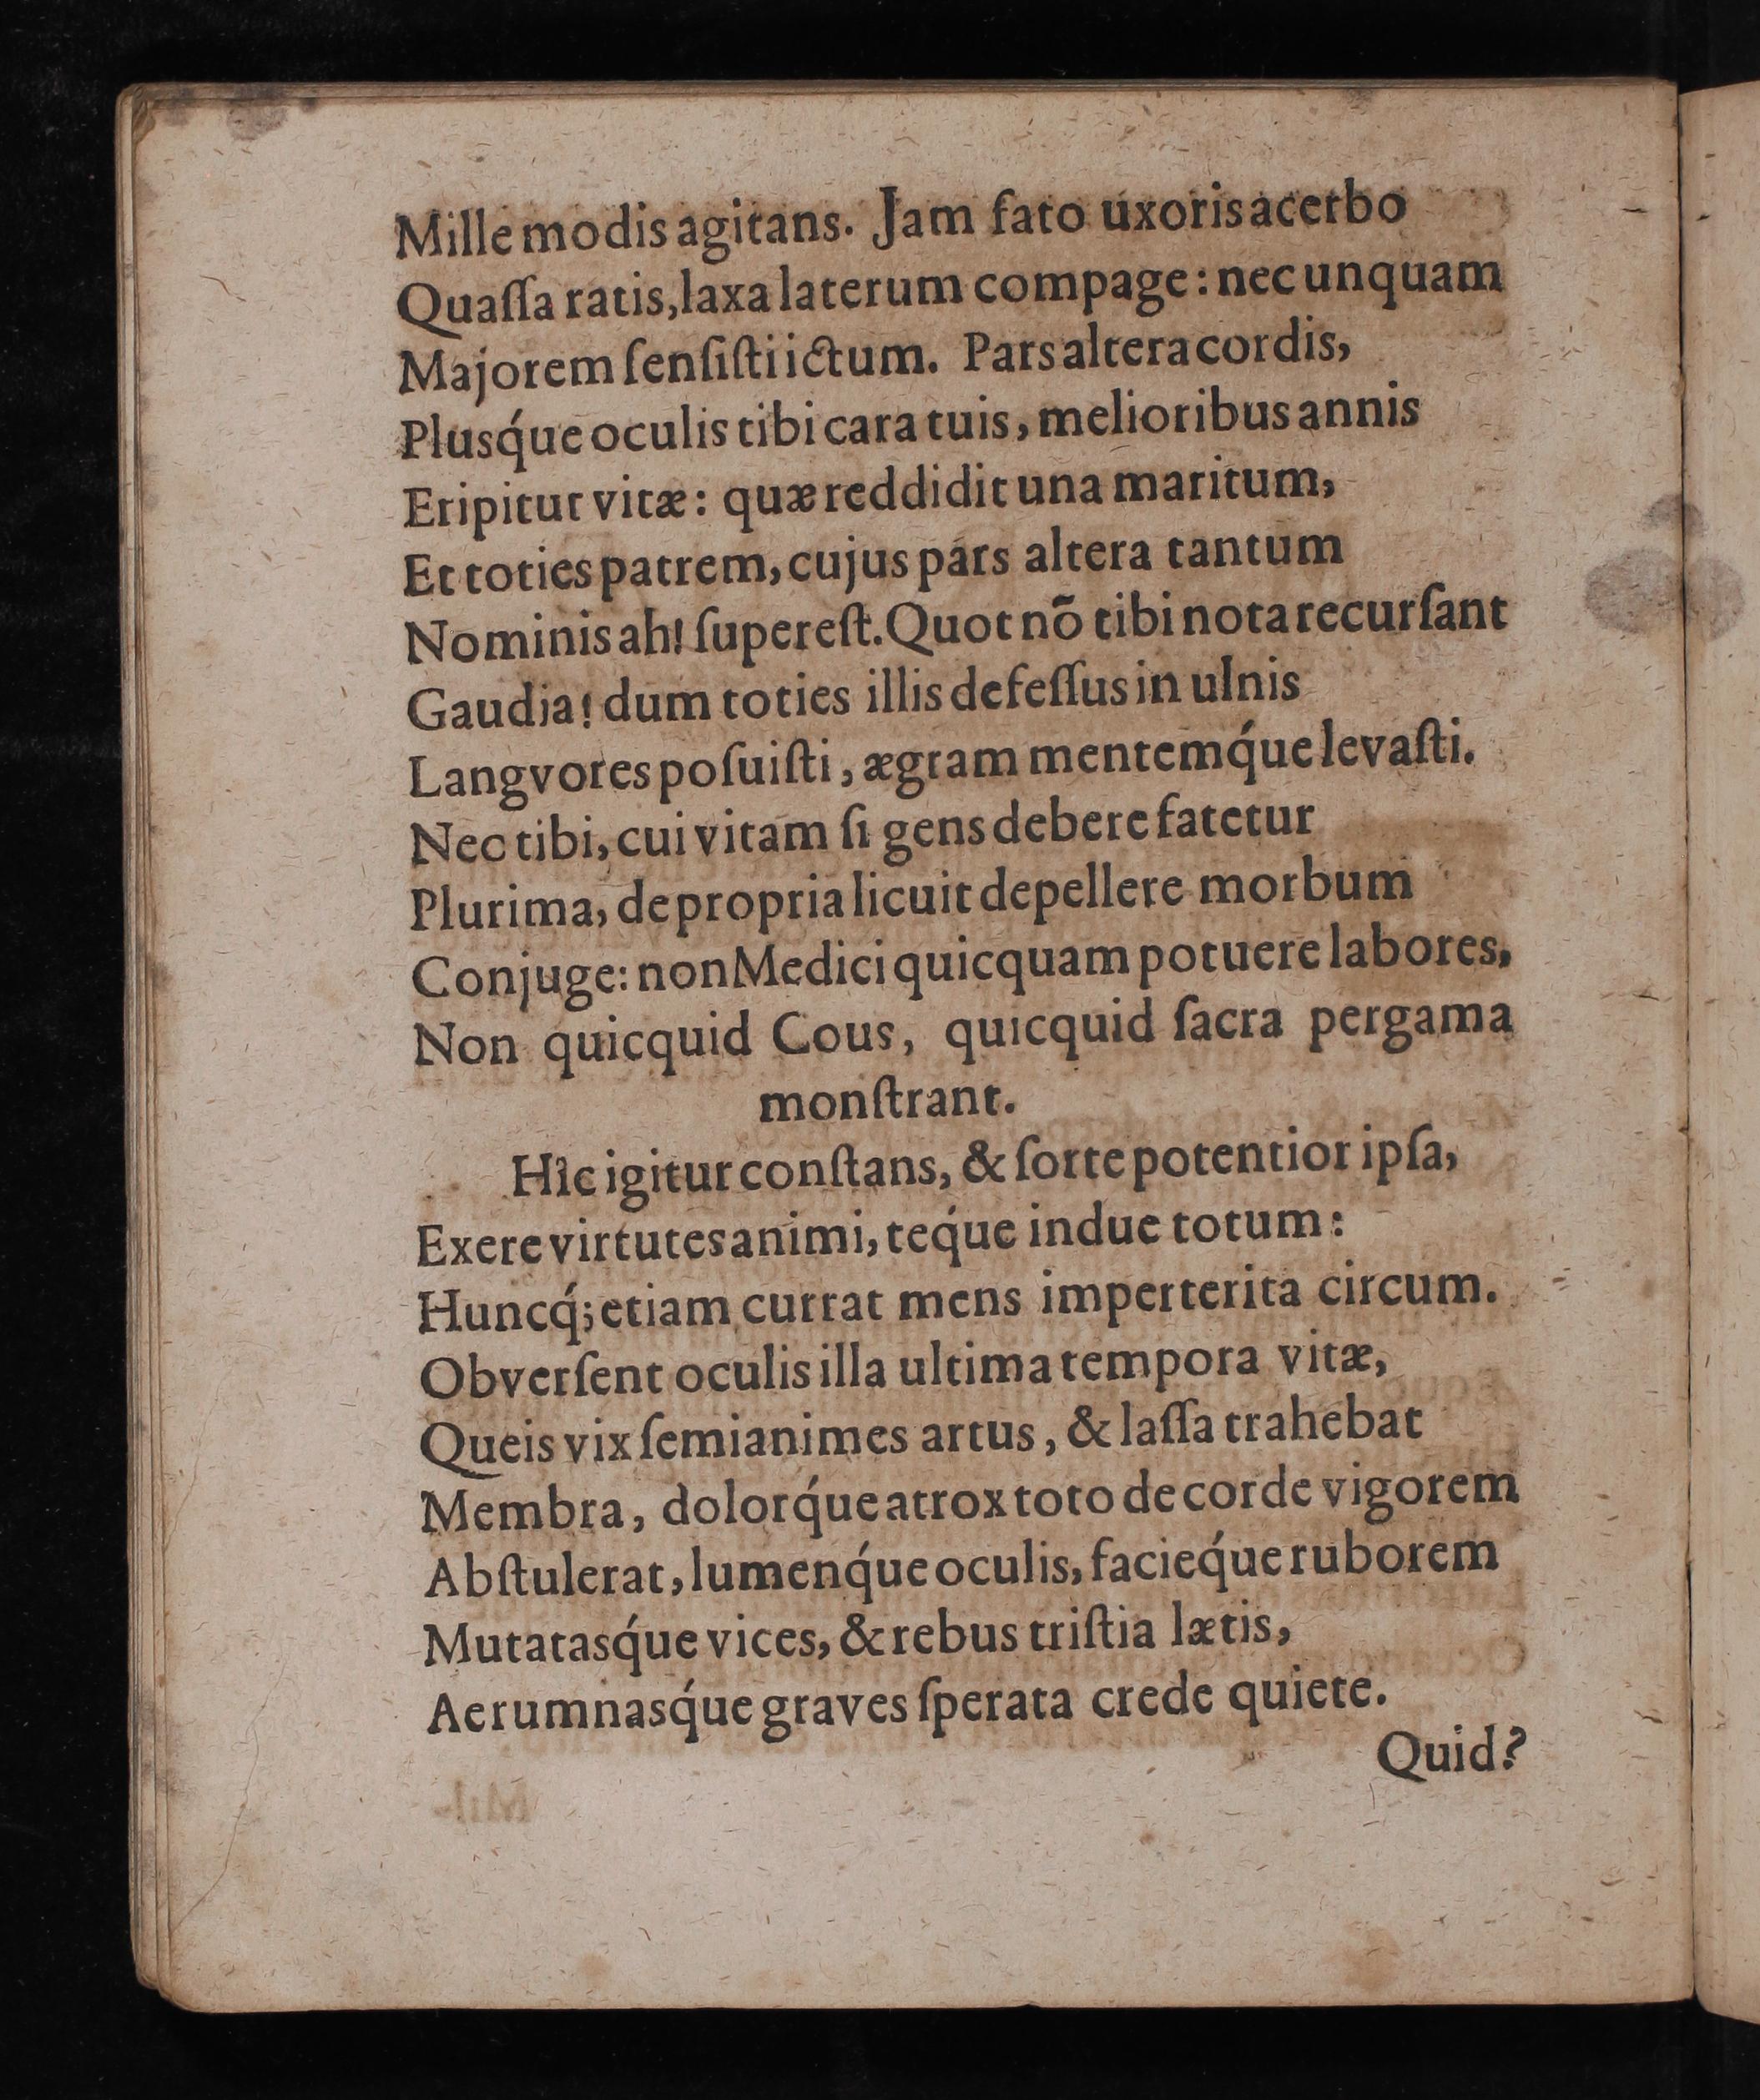 Mille modis agitans. Jam fato uxoris acerbo
Quaſſa ratis, laxa laterum compage: nec unquam
Majorem ſenſiſti ictum. Pars altera cordis,
Plusq́ue oculis tibi cara tuis, melioribus annis
Eripitur vitæ: quæ reddidit una maritum,
Et toties patrem, cujus pars altera tantum
Nominis ah! ſupereſt. Quot nõ tibi nota recurſant
Gaudia! dum toties illis defeſſus in ulnis
Langvores poſuiſti, ægram mentemq́ue levaſti.
Nec tibi, cui vitam ſi gens debere fatetur
Plurima, de propria licuit depellere morbum
Conjuge: non Medici quicquam potuere labores,
Non quicquid Cous, quicquid ſacra pergama
monſtrant.
Hîc igitur conſtans, & ſorte potentior ipſa,
Exere virtutes animi, teq́ue indue totum:
Huncq́; etiam currat mens imperterita circum.
Obverſent oculis illa ultima tempora vitæ,
Queis vix ſemianimes artus, & laſſa trahebat
Membra, dolorq́ue atrox toto de corde vigorem
Abſtulerat, lumenq́ue oculis, facieq́ue ruborem
Mutatasq́ue vices, & rebus triſtia lætis,
Aerumnasq́ue graves ſperata crede quiete.
Quid?